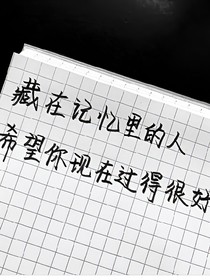 藏在记忆里的人
希望你现在过得很好